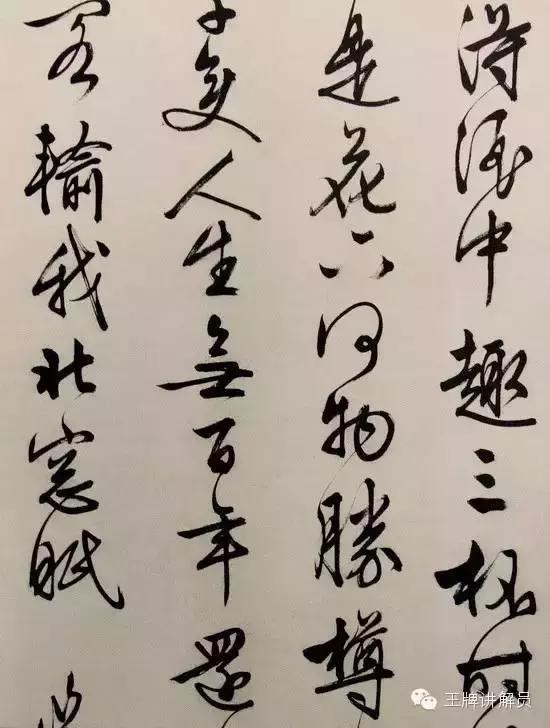 得酒中趣三杯
是花下何物勝樽
人生無百年還
輸我北窓眠
王牌讲解员